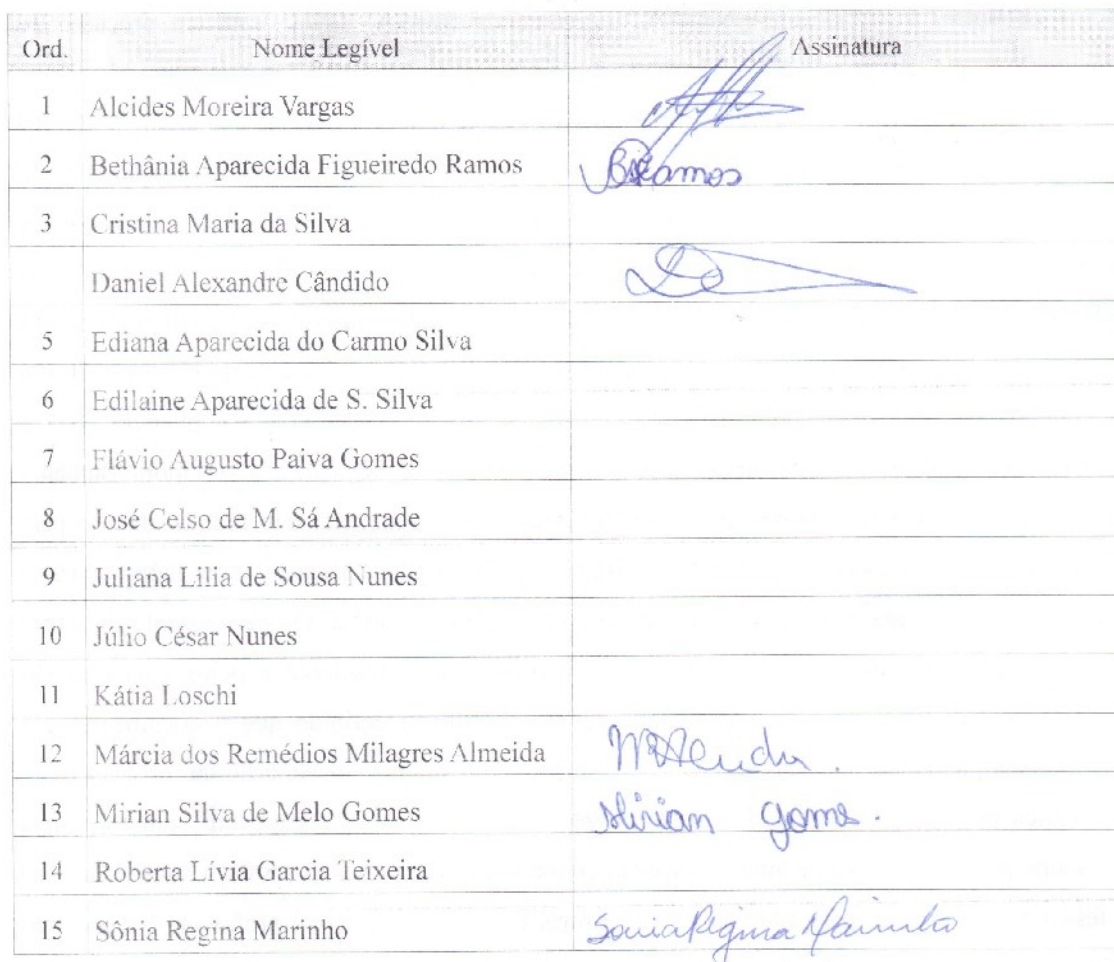 Ord. Nome Legível Assinatura
1 Alcides Moreira Vargas
2 Bethânia Aparecida Figueiredo Ramos BFRamos
3 Cristina Maria da Silva
Daniel Alexandre Cândido
5 Ediana Aparecida do Carmo Silva
6 Edilaine Aparecida de S. Silva
7 Flávio Augusto Paiva Gomes
8 José Celso de M. Sá Andrade
9 Juliana Lilia de Sousa Nunes
10 Júlio César Nunes
11 Kátia Loschi
12 Márcia dos Remédios Milagres Almeida
13 Mirian Silva de Melo Gomes Mirian Gomes.
14 Roberta Lívia Garcia Teixeira
15 Sônia Regina Marinho Sonia Regina Marinho